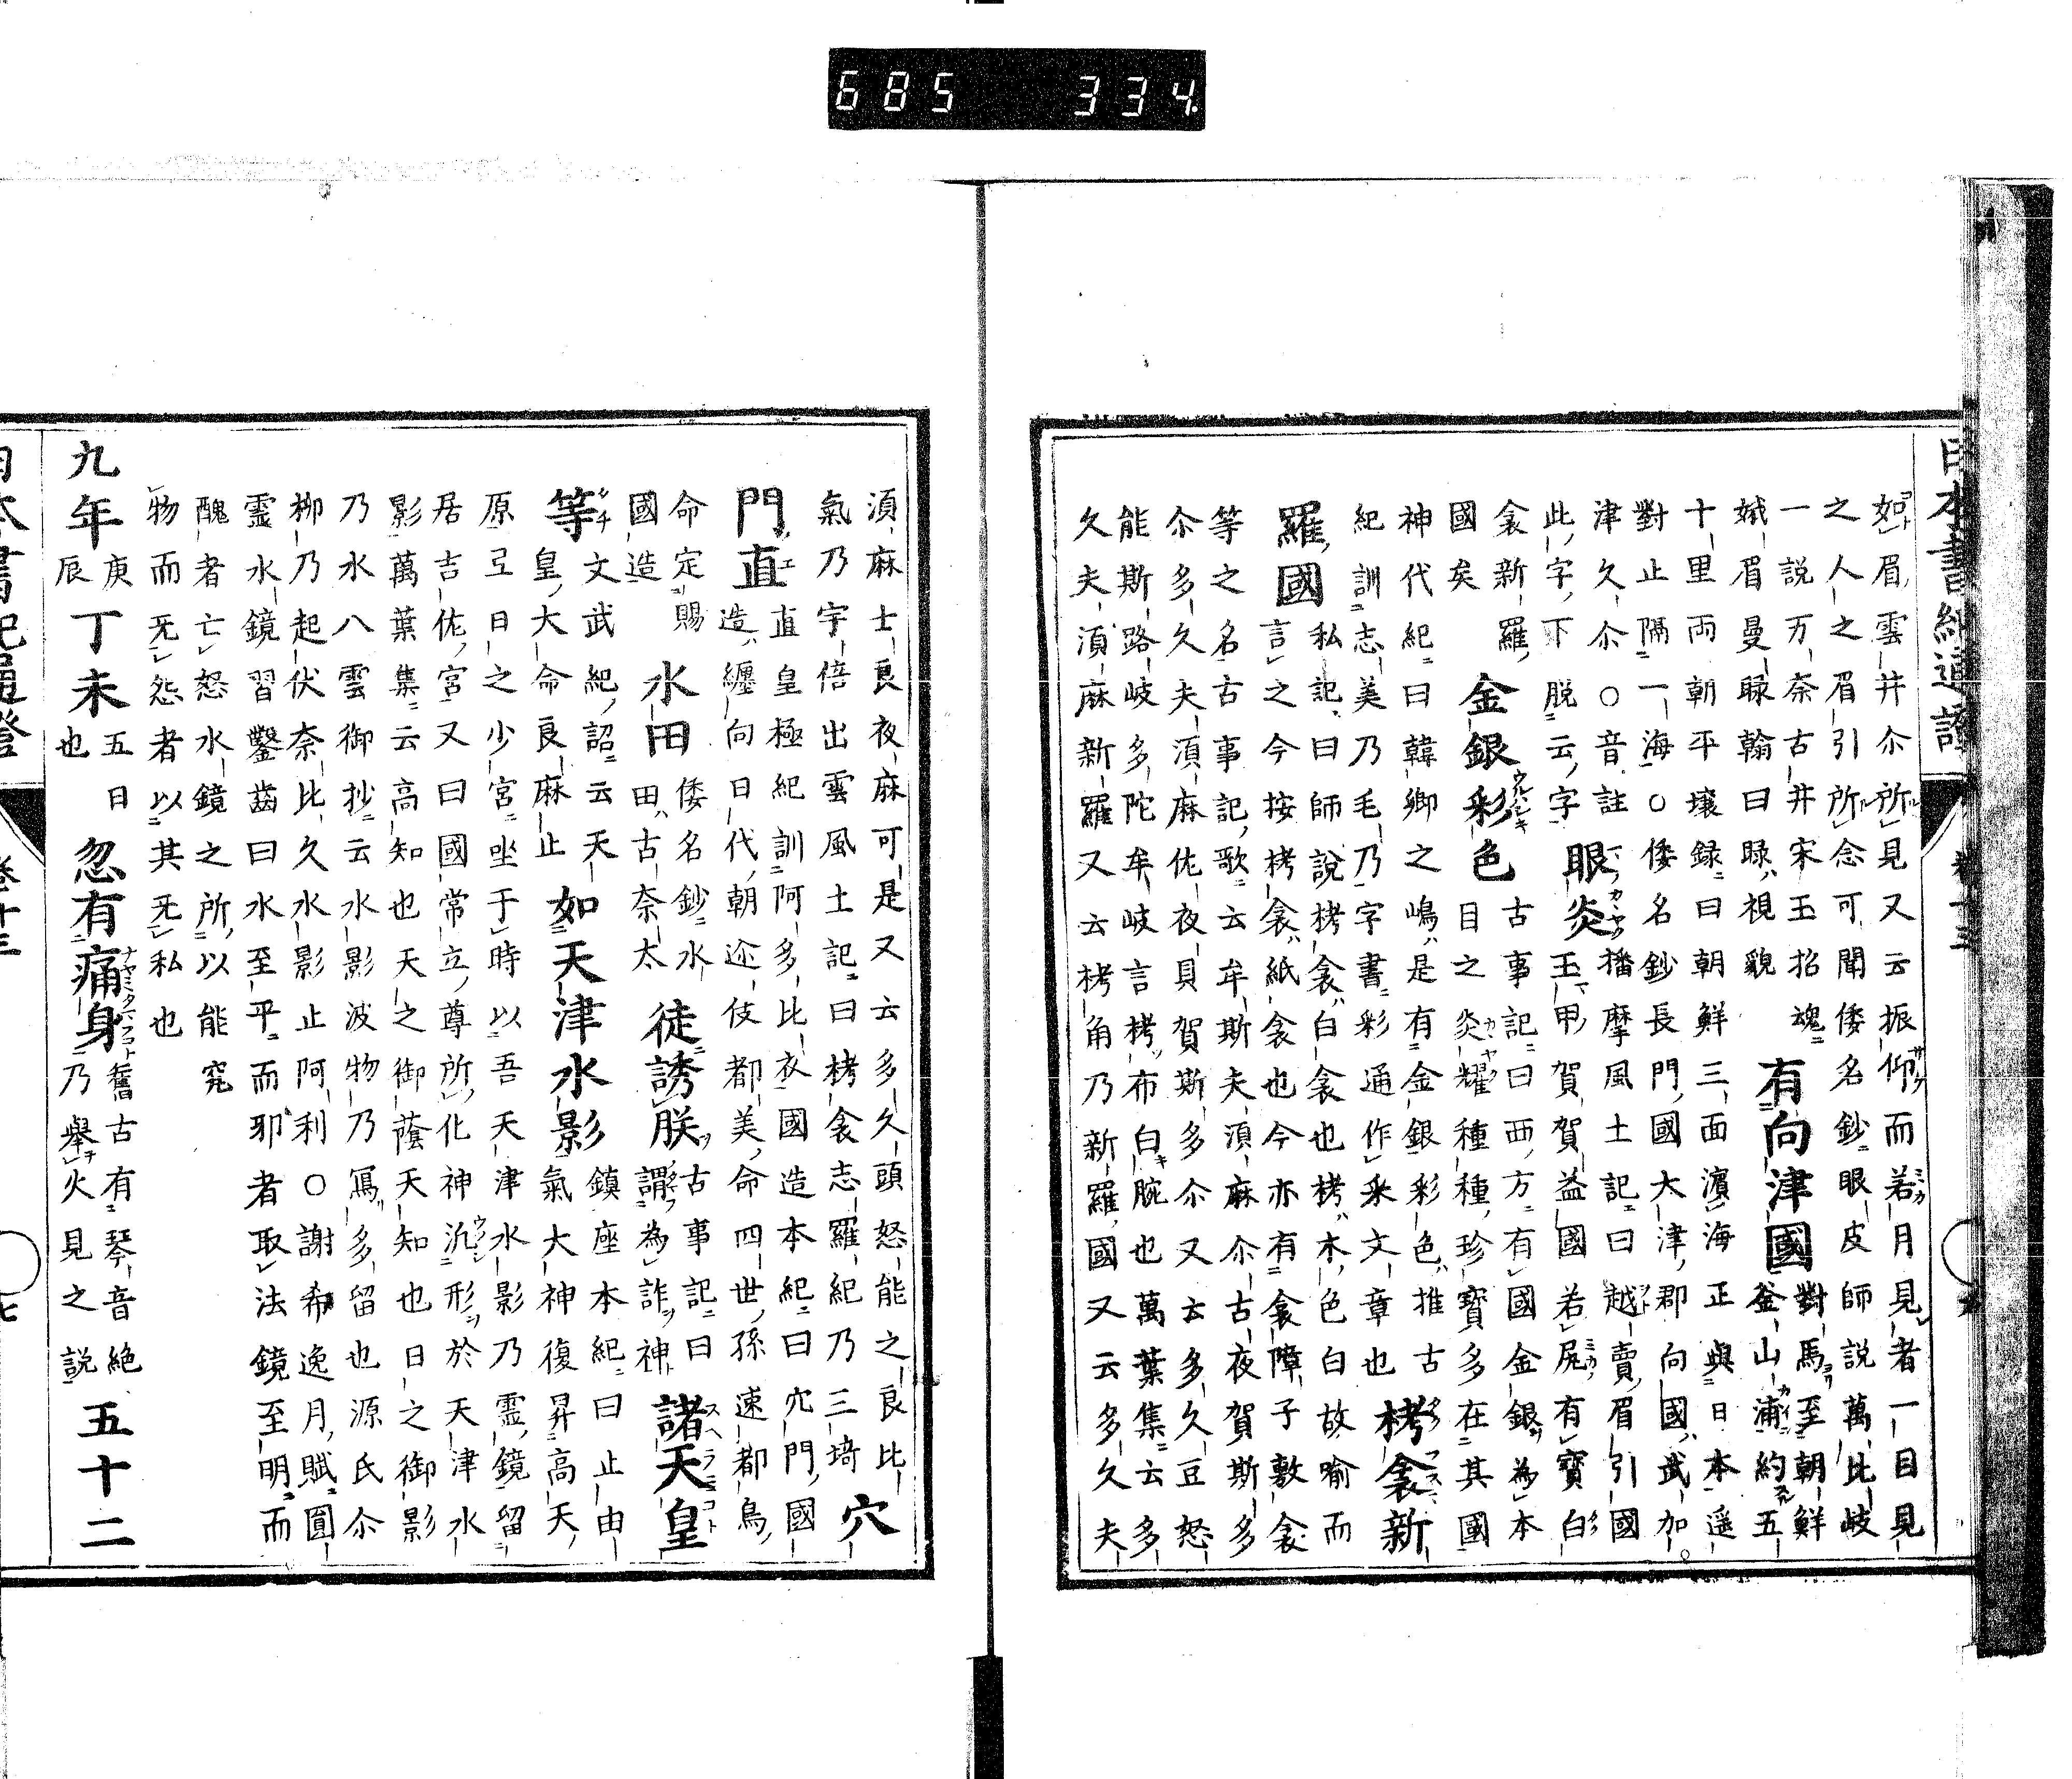 685 334
日本書紀通證
如眉雲井尒所見又云振仰而若月見者一目見
之人之眉引所念可聞倭名鈔眼皮師説萬比岐
一説万奈古井宋玉招魂
娬眉曼睩翰曰睩視貌
有向津國
對馬至朝鮮
釜山浦約五
十里両朝平壤録曰朝鮮三面濵海正與日本遥
對止隔一海○倭名鈔長門國大津郡向國武加
津久尒○音註
此字下脱云字
眼炎
播摩風土記曰越賣眉引國
玉甲賀賀益國若尻有寶白
衾新羅
國矣
金銀彩色
古事記曰西方有國金銀為本
目之炎耀種種珍寶多在其國
神代紀曰韓郷之嶋是有金銀彩色推古
紀訓志美乃毛乃字書彩通作采文章也
栲衾新
羅國
私記曰師説栲衾白衾也栲木色白故喻而
言之今按栲衾紙衾也今亦有衾障子敷衾
等之名古事記歌云牟斯夫湏麻尒古夜賀斯多
尒多久夫湏麻佐夜具賀斯多尒又云多久豆怒
能斯路岐多陀牟岐言栲布白腕也萬葉集云多
久夫湏麻新羅又云栲角乃新羅國又云多久夫
湏麻士良夜麻可是又云多久頭怒能之良比
氣乃宇倍出雲風土記曰栲衾志羅紀乃三埼
穴
門直
直皇極紀訓阿多比衣國造本紀曰穴門國
造纏向日代朝迩伎都美命四世孫速都鳥
命定賜
國造
水田
倭名鈔水
田古奈太
徒誘朕
古事記曰
謂為詐神
諸天皇
等
文武紀詔云天
皇大命良麻止
如天津水影
鎮座本紀曰止由
氣大神復昇高天
原弖日之少宮坐于時以吾天津水影乃靈鏡留
居吉佐宮又曰國常立尊所化神㲹形於天津水
影萬葉集云高知也天之御蔭天知也日之御影
乃水八雲御抄云水影波物乃寫多留也源氏尒
柳乃起伏奈比久水影止阿利○謝希逸月賦圓
靈水鏡習鑿齒曰水至平而邪者取法鏡至明而
醜者亡怒水鏡之所以能究
物而无怨者以其无私也
九年
庚
辰
丁未
五日
也
忽有痛身
舊古有琴音絶
乃舉火見之説
五十二
日本書紀通證
卷十三
七